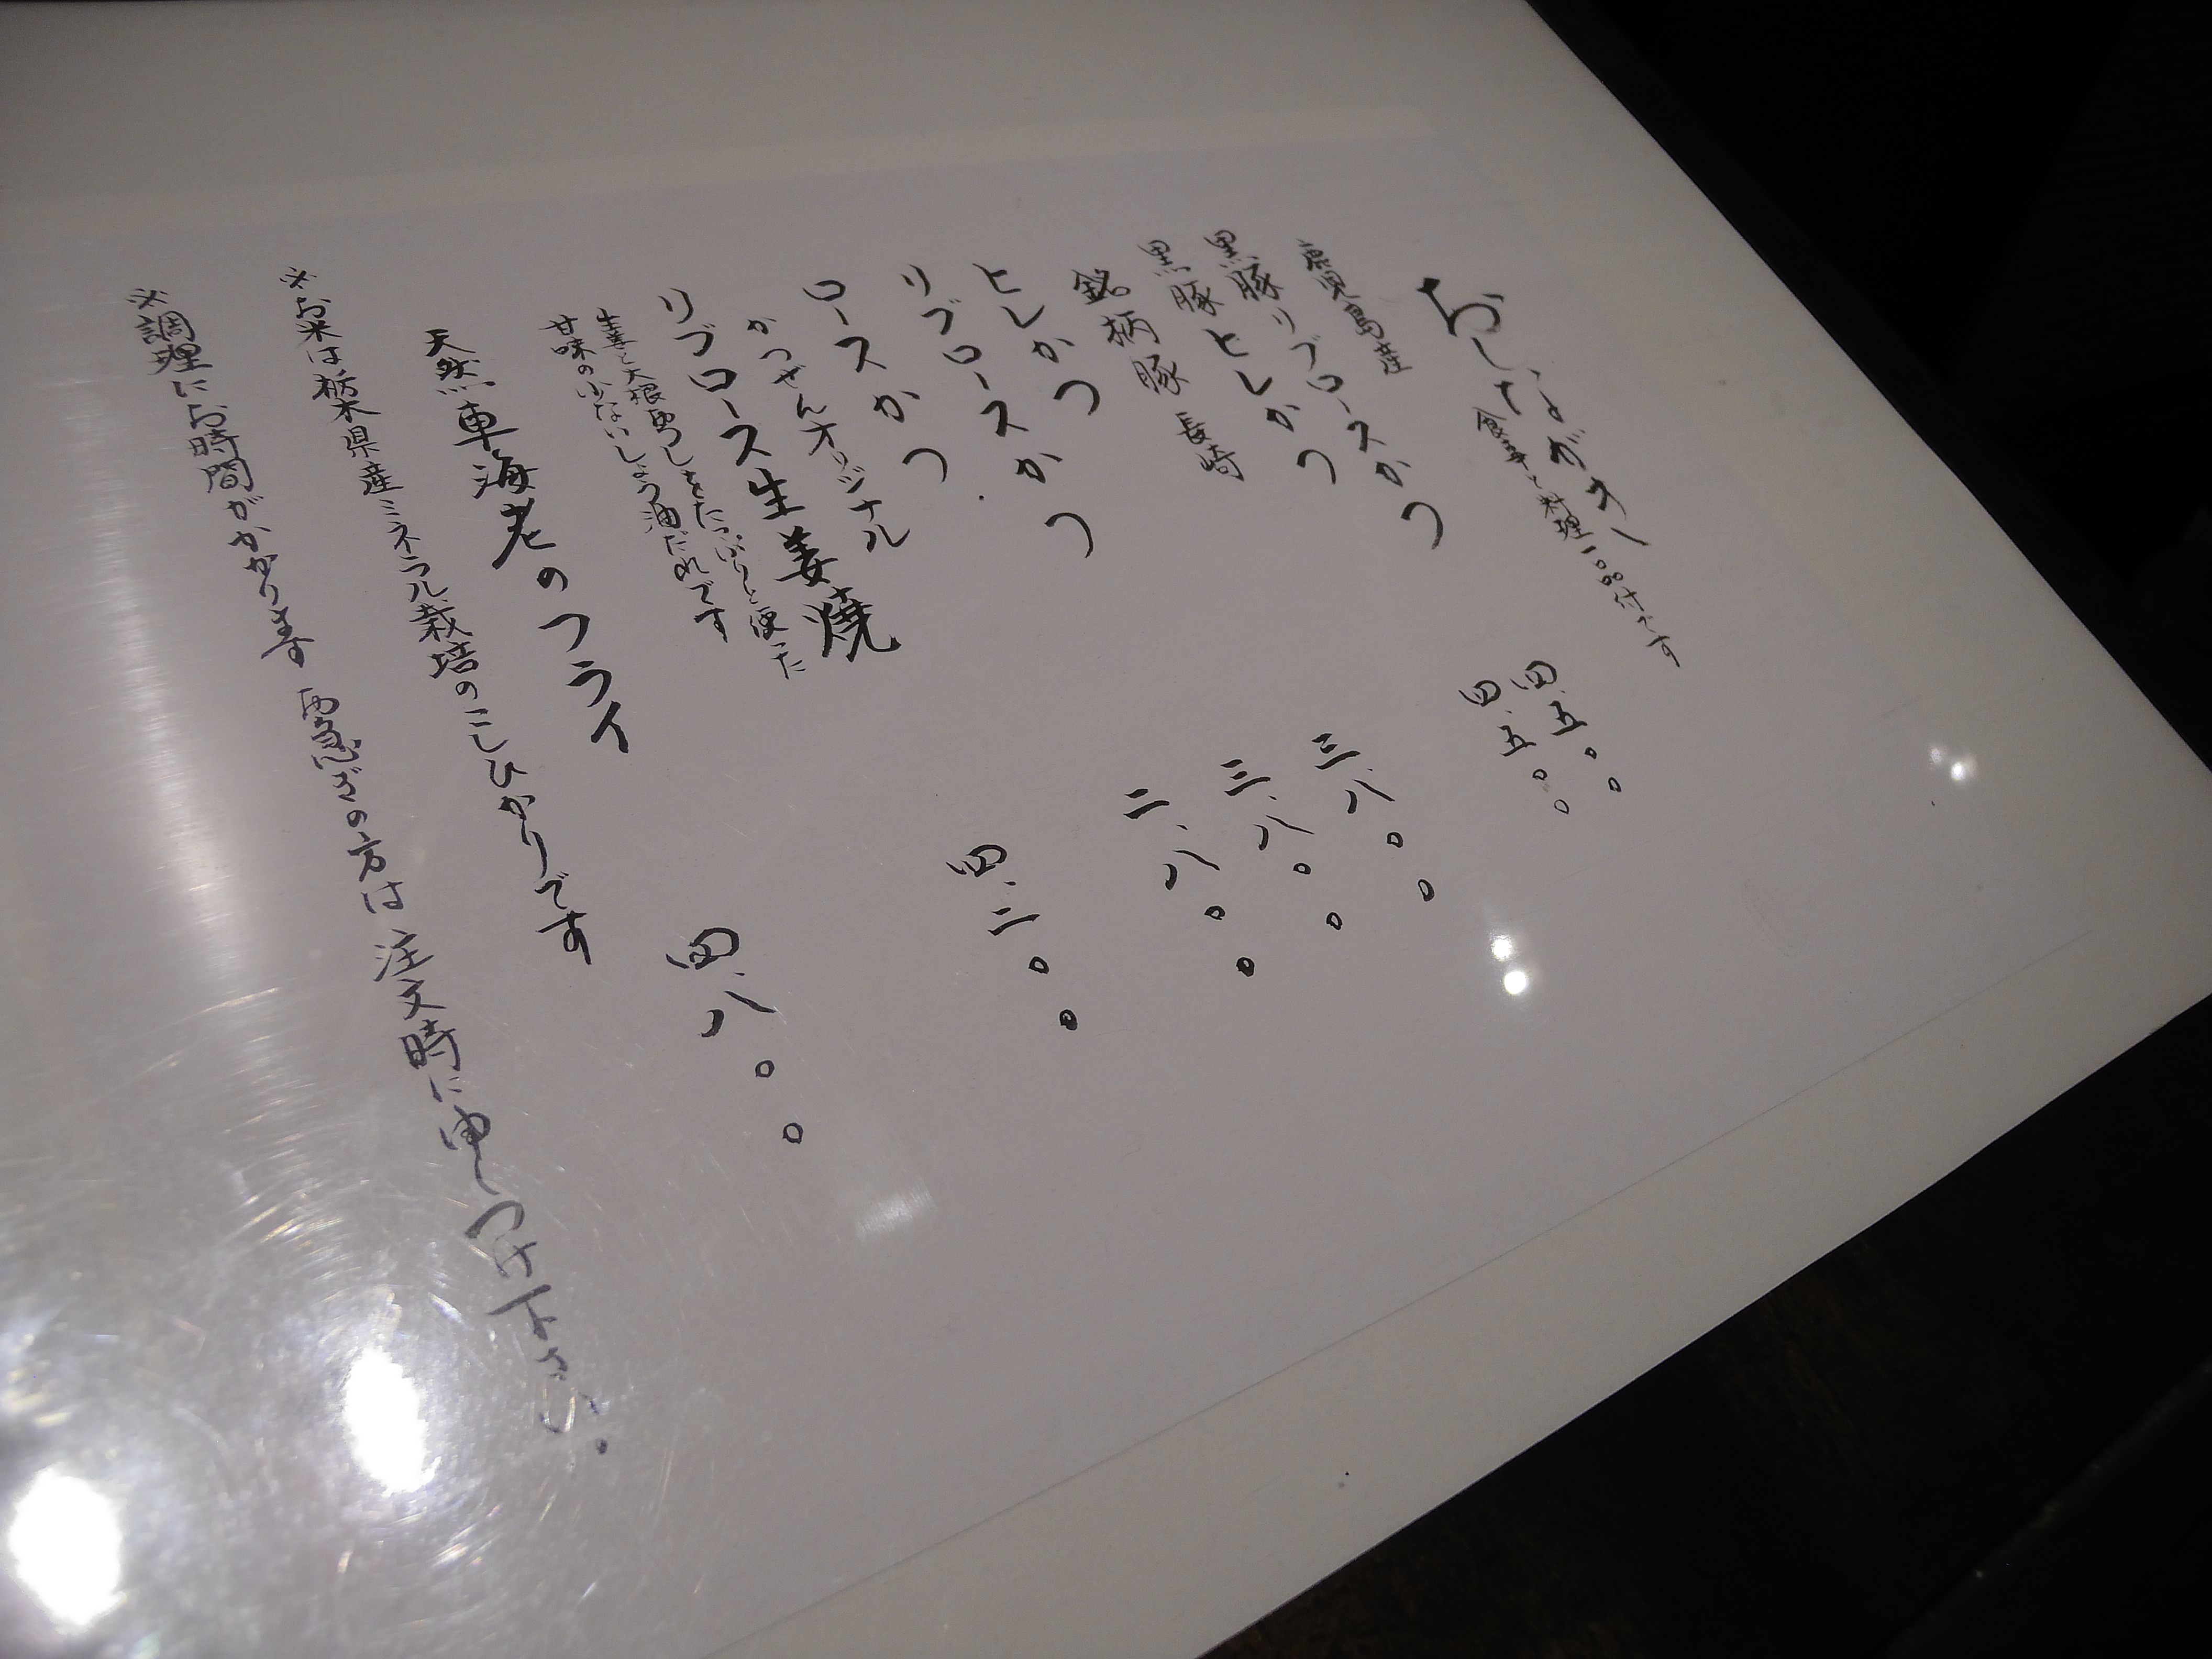 おしながき
食事と料理一品付です
鹿児島産
黒豚リブロースかつ 四、五〇〇
黒豚ヒレかつ 四、五〇〇
銘柄豚 長崎
ヒレかつ 三、八〇〇
リブロースかつ 三、八〇〇
ロースかつ 二、八〇〇
かつぜんオリジナル
リブロース生姜燒 四、二〇〇
生姜と大根おろしをたっぷりと使った
甘味の少ないしょう油だれです
天然車海老のフライ 四、八〇〇
※お米は栃木県産ミネラル栽培のこしひかりです
※調理にお時間がかかります お急ぎの方は注文時に申しつけ下さい。